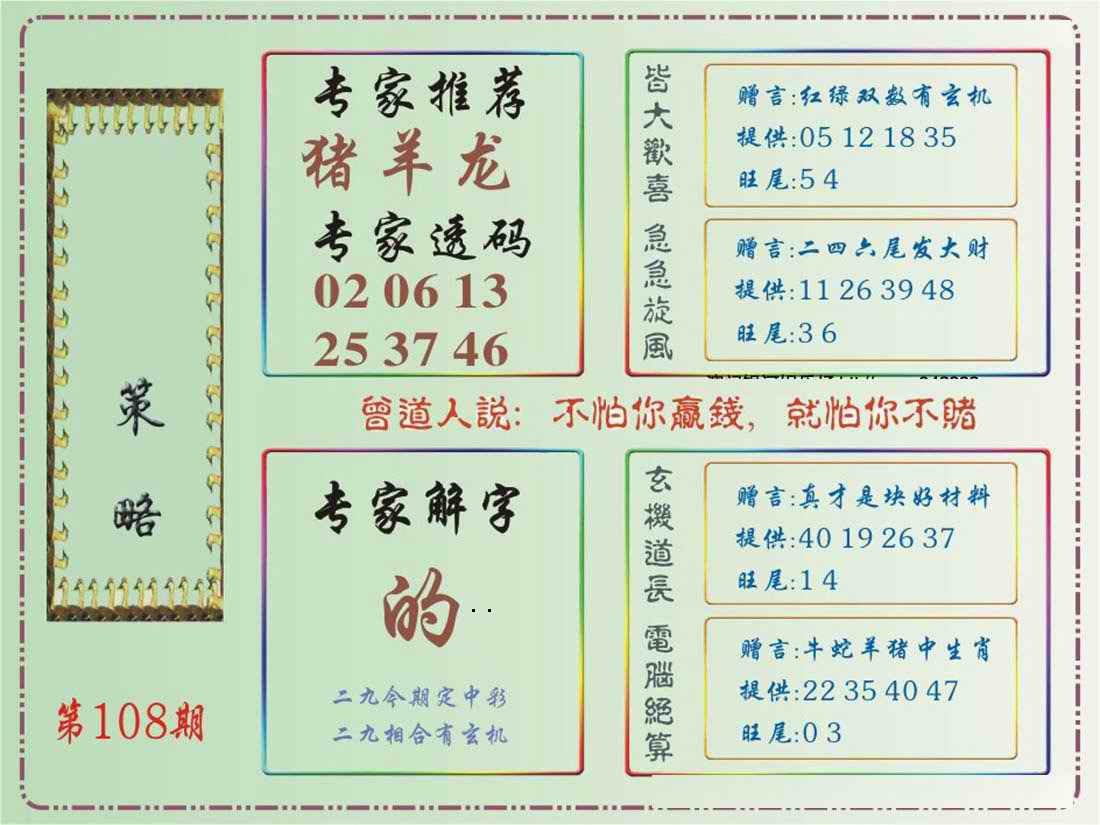 策
略
第108期
专家推荐
猪羊龙
专家透码
02 06 13
25 37 46
皆大歡喜
赠言:红绿双数有玄机
提供:05 12 18 35
旺尾:5 4
急急旋風
赠言:二四六尾发大财
提供:11 26 39 48
旺尾:3 6
曾道人説: 不怕你贏錢, 就怕你不賭
专家解字
的
二九今期定中彩
二九相合有玄机
玄機道長
赠言:真才是块好材料
提供:40 19 26 37
旺尾:1 4
電腦絕算
赠言:牛蛇羊猪中生肖
提供:22 35 40 47
旺尾:0 3